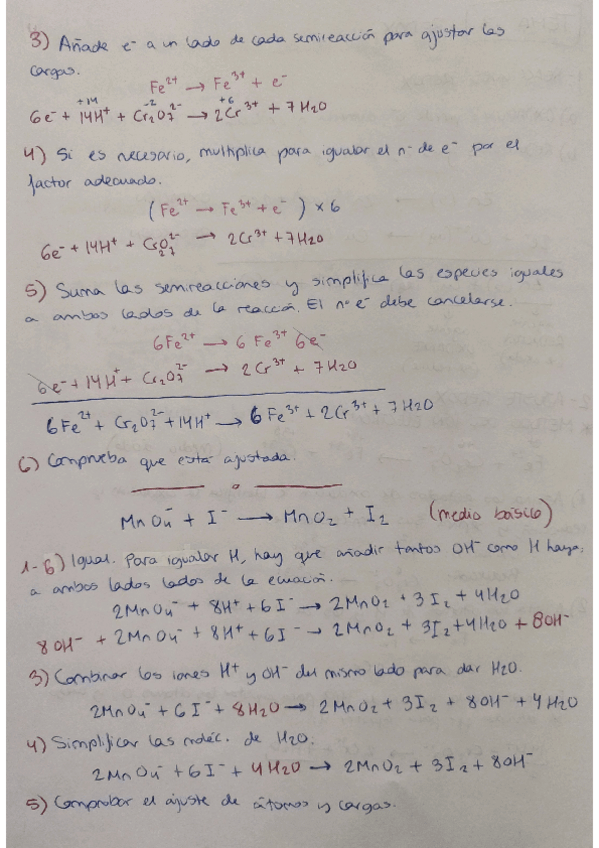 3) Añade e⁻ a un lado de cada semireacción para ajustar las
cargas.
Fe²⁺ → Fe³⁺ + e⁻
+14 -2 +6
6e⁻ + 14H⁺ + Cr₂O₇²⁻ → 2Cr³⁺ + 7H₂O
4) Si es necesario, multiplica para igualar el nº de e⁻ por el
factor adecuado.
(Fe²⁺ → Fe³⁺ + e⁻) × 6
6e⁻ + 14H⁺ + Cr₂O₇²⁻ → 2Cr³⁺ + 7H₂O
5) Suma las semireacciones y simplifica las especies iguales
a ambos lados de la reacción. El nº e⁻ debe cancelarse.
6Fe²⁺ → 6Fe³⁺ 6e⁻
6e⁻ + 14H⁺ + Cr₂O₇²⁻ → 2Cr³⁺ + 7H₂O
6Fe²⁺ + Cr₂O₇²⁻ + 14H⁺ → 6Fe³⁺ + 2Cr³⁺ + 7H₂O
6) Comprueba que está ajustada.
MnO₄⁻ + I⁻ → MnO₂ + I₂ (medio básico)
1-6) Igual. Para igualar H, hay que añadir tantos OH⁻ como H haya,
a ambos lados lados de la ecuación.
2MnO₄⁻ + 8H⁺ + 6I⁻ → 2MnO₂ + 3I₂ + 4H₂O
8OH⁻ + 2MnO₄⁻ + 8H⁺ + 6I⁻ → 2MnO₂ + 3I₂ + 4H₂O + 8OH⁻
3) Combinar los iones H⁺ y OH⁻ del mismo lado para dar H₂O.
2MnO₄⁻ + 6I⁻ + 8H₂O → 2MnO₂ + 3I₂ + 8OH⁻ + 4H₂O
4) Simplificar las moléc. de H₂O.
2MnO₄⁻ + 6I⁻ + 4H₂O → 2MnO₂ + 3I₂ + 8OH⁻
5) Comprobar el ajuste de átomos y cargas.